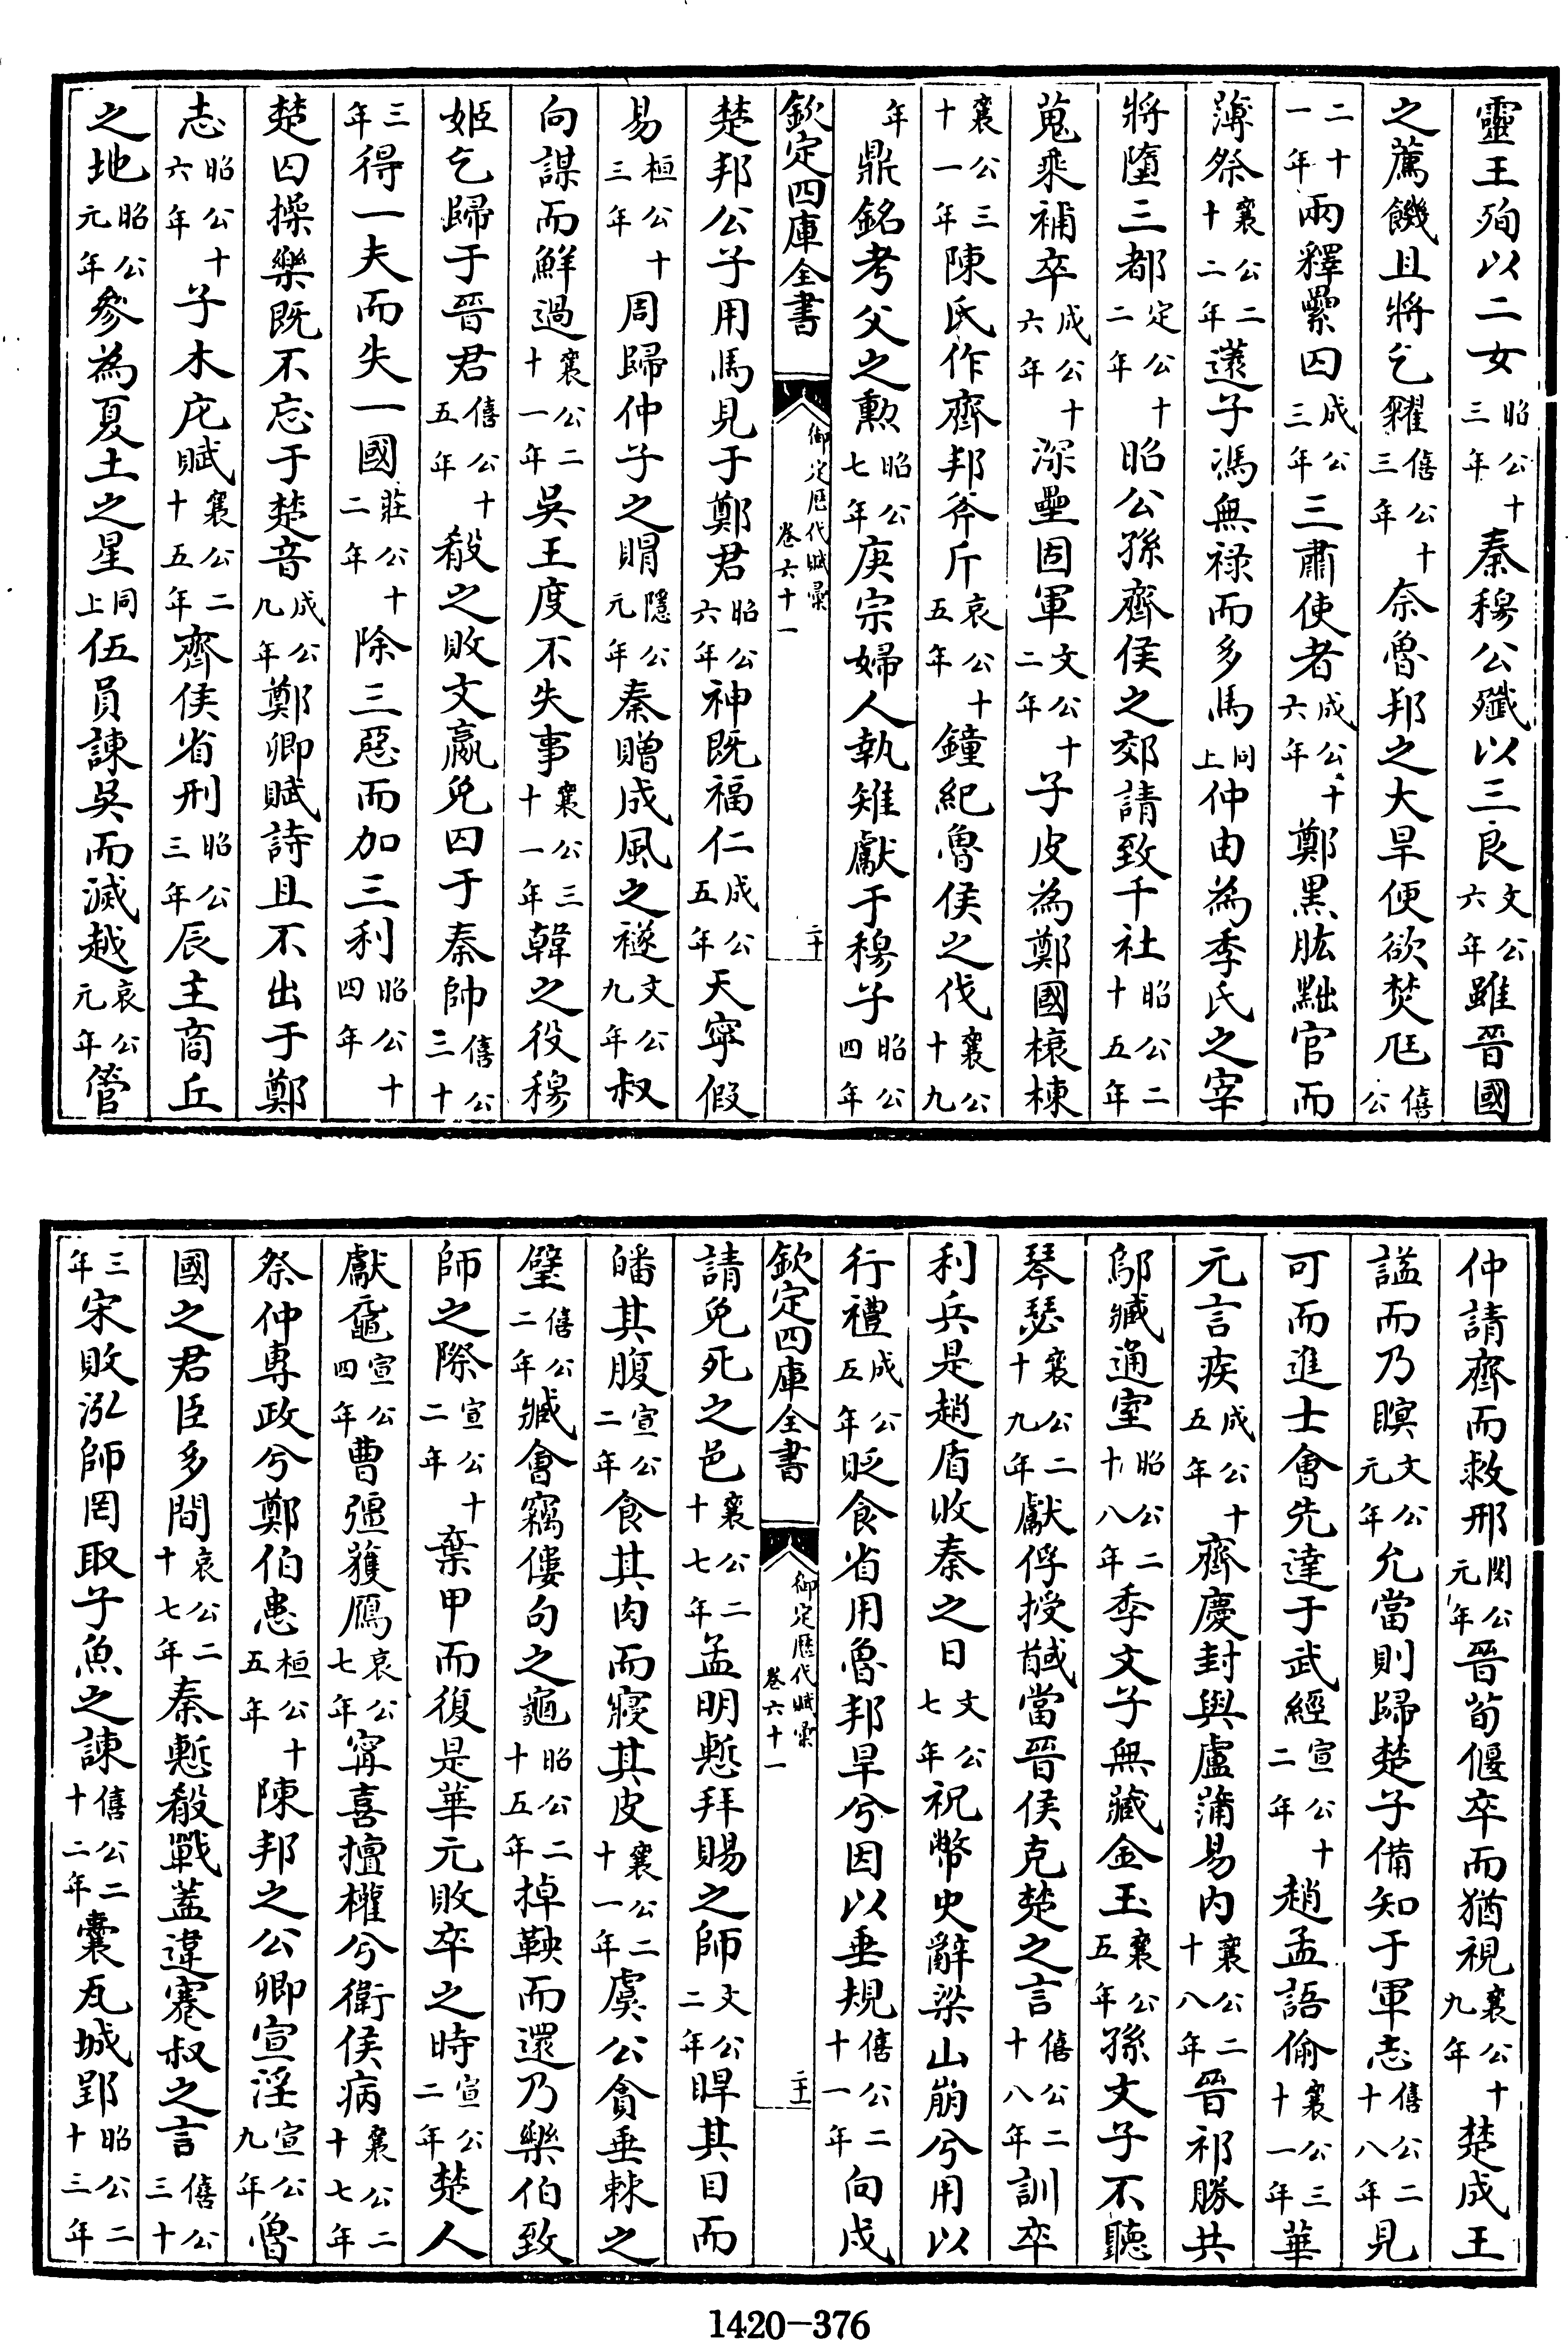 靈王殉以二女昭公十三年秦穆公殲以三良文公六年雖晉國
之薦饑且將乞糴僖公十三年奈魯邦之大旱便欲焚尫僖公
二十一年兩釋纍囚成公三年三肅使者成公十六年鄭黑肱黜官而
薄祭襄公二十二年薳子馮無祿而多馬同上仲由為季氏之宰
將墮三都定公十二年昭公孫齊侯之郊請致千社昭公二十五年
蒐乘補卒成公十六年深壘固軍文公十二年子皮為鄭國榱棟
襄公三十一年陳氏作齊邦斧斤哀公十五年鐘紀魯侯之伐襄公十九
年鼎銘考父之勲昭公七年庚宗婦人執雉獻于穆子昭公四年
欽定四庫全書 御定歷代賦彙 卷六十一 二十
楚邦公子用馬見于鄭君昭公六年神既福仁成公五年天寧假
易桓公十三年周歸仲子之賵隱公元年秦贈成風之襚文公九年叔
向謀而鮮過襄公二十一年吳王度不失事襄公三十一年韓之役穆
姬乞歸于晉君僖公十五年殽之敗文嬴免囚于秦帥僖公三十
三年得一夫而失一國莊公十二年除三惡而加三利昭公十四年
楚囚操樂既不忘于楚音成公九年鄭卿賦詩且不出于鄭
志昭公十六年子木庀賦襄公二十五年齊侯省刑昭公三年辰主商丘
之地昭公元年參為夏土之星同上伍員諫吳而滅越哀公元年管
仲請齊而救邢閔公元年晉荀偃卒而猶視襄公十九年楚成王
謚而乃瞑文公元年允當則歸楚子備知于軍志僖公二十八年見
可而進士會先達于武經宣公十二年趙孟語偷襄公三十一年華
元言疾成公十五年齊慶封與盧蒲易內襄公二十八年晉祁勝共
鄔臧通室昭公二十八年季文子無藏金玉襄公五年孫文子不聽
琴瑟襄公二十九年獻俘授馘當晉侯克楚之言僖公二十八年訓卒
利兵是趙盾敗秦之日文公七年祝幣史辭梁山崩兮用以
行禮成公五年貶食省用魯邦旱兮因以垂規僖公二十一年向戌
欽定四庫全書 御定歷代賦彙 卷六十一 二十一
請免死之邑襄公二十七年孟明慙拜賜之師文公二年睅其目而
皤其腹宣公二年食其肉而寢其皮襄公二十一年虞公貪垂棘之
璧僖公二年臧會竊僂句之龜昭公二十五年掉鞅而還乃樂伯致
師之際宣公十二年棄甲而復是華元敗卒之時宣公二年楚人
獻黿宣公四年曹彊獲鴈哀公七年甯喜擅權兮衛侯病襄公二十七年
祭仲專政兮鄭伯患桓公十五年陳邦之公卿宣淫宣公九年魯
國之君臣多間哀公二十七年秦慙殽戰蓋違蹇叔之言僖公三十
三年宋敗泓師罔取子魚之諫僖公二十二年囊瓦城郢昭公二十三年
1420-376